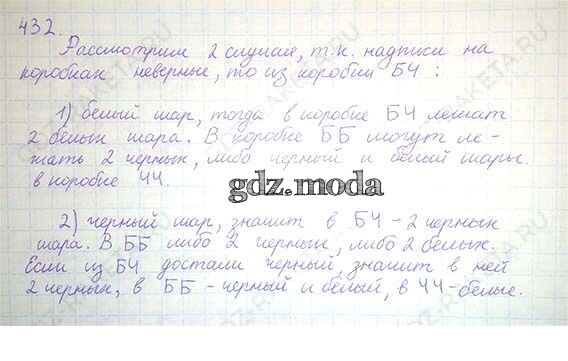 432.
Рассмотрим 2 случая, т.к. надписи на
коробках неверные, то из коробки БЧ :
1) белый шар, тогда в коробке БЧ лежат
2 белых шара. В коробке ББ могут ле-
жать 2 черных, либо черный и белый шары.
в коробке ЧЧ.
gdz.moda
2) черный шар, значит в БЧ - 2 черных
шара. В ББ либо 2 черных, либо 2 белых.
Если из БЧ достали черный, значит в ней
2 черных, в ББ - черный и белый, в ЧЧ - белые.